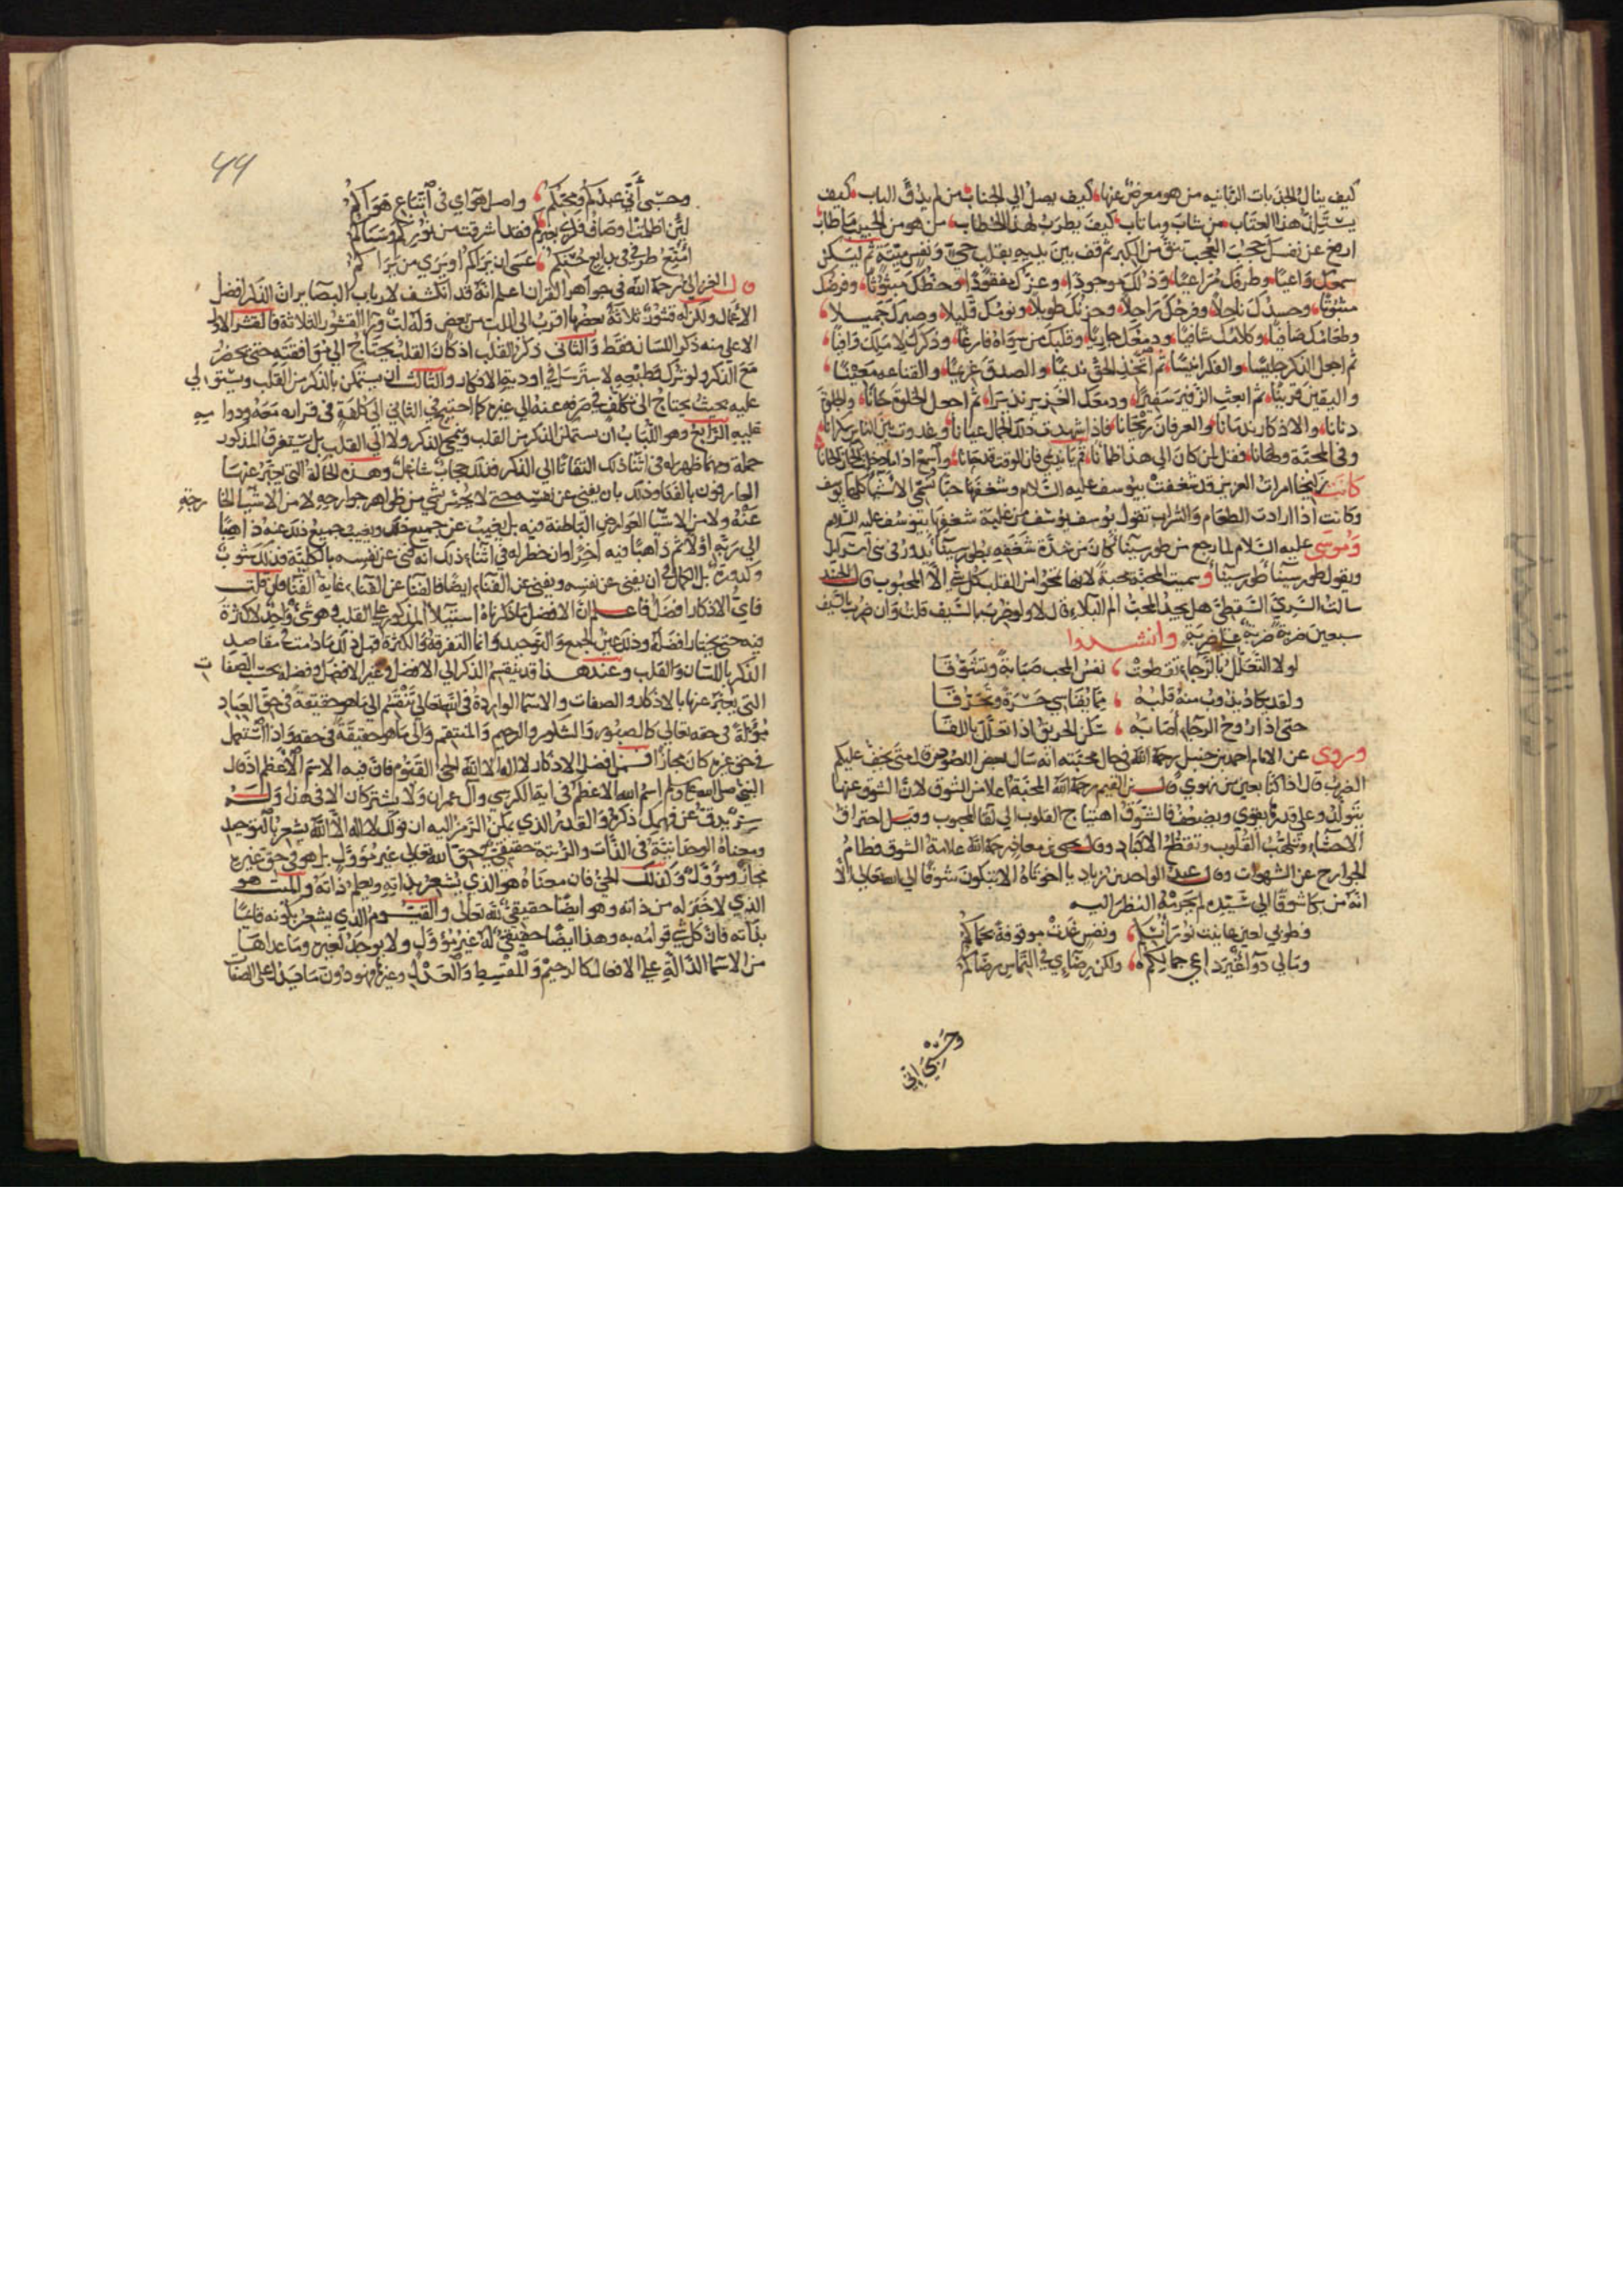 كيف ينال الجذبات الربانيه من هو معرض عنها كيف يصل الي الجناب من لم يدق الباب كيف
هذا العتاب من شاب وما تاب كيف يطرب لهذا الخطاب من هو من الحبيب ما طاب
عن نفسك حجب العجب من الكبر ثم قف بين يديه بقلب حي ونفس ميتة ثم ليكن
سمعك واعيا وطرفك مراعيا وذلك موجودا وعزك مفقودا وحظك مبثوثا وفرضك
مثبوتا وجسدك ناحلا وفرحك راحلا وحزنك طويلا ونومك قليلا وصبرك جميلا
وطعامك صافيا وكلامك شافيا ودمعك جاريا وقلبك عن سواه فارغا وذكرك
ثم اجعل الذكر جليسا والفكر انيسا ثم اتخذ الحق نديما والصدق غريما والقناعه
واليقين قرينا ثم ابعث الزفير سفيرا ودمعك الغزير ثم اجعل الخلوة حانا
دنانا والاذكار ندمانا والعرفان ريحانا فاذا شهدت ذلك الجمال عيانا وغدوت بين الناس سكرانا
وفي المحبة ولهانا فقل لمن كان الي هذا ظمآنا قم يا نديمي فان الوقت قد حانا
كانت زليخا امرات العزيز قد شغفت بيوسف عليه السلام وشغفها حبا تسمي الاشيا كلها يوسف
وكانت اذا ارادت الطعام والشراب تقول يوسف يوسف من غلبة شغفها بيوسف عليه السلام
وموسى عليه السلام لما رجع من طور سينا كان من شدة شغفه بطور سينا يدور في بني اسرايل
ويقول طور سينا طور سينا وسميت المحبة محبة لانها تمحوا من القلب كل شي الا المحبوب قال الجنيد
سالت السري السقطي هل يجد المحب الم البلاء قال لا ولو ضرب بالسيف قلت وان ضرب بالسيف
سبعين ضربة ضربة على ضربة وانشدوا
لولا التعلل بالرجاء تقطعت نفس المحب صبابة وتشوقا
ولقد يكاد يذوب منه قلبه مما يقاسي حسرة وتحرقا
حتى اذا روح الرجاء اصابه سكن الحريق اذا تعلل باللقا
وروى عن الامام احمد بن حنبل رحمه الله في حال محنته انه سال لبعض اللصوص متى يخف عليكم
الضرب قال اذا كنا بعين من نهوي قال ابن القيم رحمه الله المحبة اعلا من الشوق لان الشوق عنها
يتولد وعلي قدرها يقوى ويضعف فالشوق اهتياج القلوب الي لقا المحبوب وقيل احتراق
الاحشاء وتلهب القلوب وتقطع الاكباد وقال يحيى بن معاذ رحمه الله علامة الشوق فطام
الجوارح عن الشهوات وقال عبد الواحد بن زياد يا اخوتاه الا تبكون شوقا الي الله تعالى الا
انه من بكا شوقا الي سيده لم يحرمه النظر اليه
فطوبي لعين عاينت نور ونفس غدت موقوفة بحماكم
ومالي دوا غير داعي جمالكم ولكن رضاءي في التماس رضاكم
وحسبي اني
44
وحسبي أني عبدكم ومحبكم واصل هواي في اتباع هواكم
لئن اظلمت اوصاف بعبدكم فقد اشرقت من نوركم وسناكم
امتع طرفي في بدايع حسنكم عسى ان يراكم او يرى من يراكم
قال الغزالي رحمه الله في جواهر القران اعلم انه قد انكشف لارباب البصاير ان الذكر افضل
الاعمال ولكن له قشور ثلاثة بعضها اقرب الي اللب من بعض وله لب ورا القشور الثلاثة فالقشر الاول
الاعلي منه ذكر اللسان فقط والثاني ذكر القلب اذ كان القلب يحتاج الي موافقته حتى يحضر
مع الذكر ولو ترك وطبعه لاسترسل في اودية الافكار والثالث ان يستمكن الذكر من القلب ويستولي
عليه بحيث يحتاج الي تكلف في صرفه عنه الي غيره كما احتيج في الثاني الي كلفة في قراره معه ودوامه
عليه الرابع وهو اللباب ان يستمكن المذكور من القلب وينمحي الذكر ولا الي القلب بل يستغرق المذكور
جملة ومهما ظهر له في اثنا ذلك التفاتا الي الذكر فذلك حجاب شاغل وهذه الحالة التي يعبر عنها
العارفون بالفنا وذلك بان يفني عن نفسه حتى لا يحس بشي من ظواهر جوارحه ولا من الاشيا الخارجة
عنه ولا من الاشيا العوارض الباطنة فيه بل يغيب عن جميع ذلك ويغيب جميع ذلك عنه ذاهبا
الي ربه اولا ثم ذاهبا فيه آخرا وان خطر له في اثناء ذلك انه فني عن نفسه بالكلية فذلك شوب
وكدورة بل الكمال في ان يفني عن نفسه ويفني عن الفناء ايضا فالفنا عن الفناء غاية الفنا فان قلت
فاي الاذكار افضل فاعلم ان الافضل ما ذكرناه استيلا المذكور علي القلب وهو شي واحد لا كثرة
فيه حتى يختار افضله وذلك عين الجمع والتوحيد وانما التفرقة والكثرة قبل ذلك ما دمت في مقاصد
الذكر باللسان والقلب وعند هذا قد ينقسم الذكر الي الافضل وغير الافضل وفضله بحسب الصفات
التي يعبر عنها بالاذكار والصفات والاسما الواردة في الله تعالي تنقسم الي ما هو حقيقة في حق العباد
مؤولة في حقه تعالي كالصبور والشكور والرحيم والمنتقم والي ما هو حقيقة في حقه واذا استعمل
في حق غيره كان مجازا فمن افضل الاذكار لا اله الا الله الحي القيوم فان فيه الاسم الاعظم اذ قال
النبي صلى الله عليه وسلم اسم الله الاعظم في اية الكرسي وآل عمران ولا يشتركان الا في هذا وله
سر يدق عن فهمك ذكره والقدر الذي يمكن الرمز اليه ان قولك لا اله الا الله يشعر بالتوحيد
ومعناه الوحدانية في الذات والرتبة حقيقي في حق الله تعالى غير مؤول بل هو في حق غيره
مجاز ومؤول وكذلك الحي فان معناه هو الذي يشعر بذاته ويعلم ذاته والميت هو
الذي لا خبر له من ذاته وهو ايضا حقيقي لله تعالى والقيوم الذي يشعر بكونه قائما
بذاته فان كل شي قوامه به وهذا ايضا حقيقي له غير مؤول ولا يوجد لغيره وما عداها
من الاسما الدالة علي الافعال كالرحيم والمقسط والعدل وغيره فهو دون ما يدل على الصفات